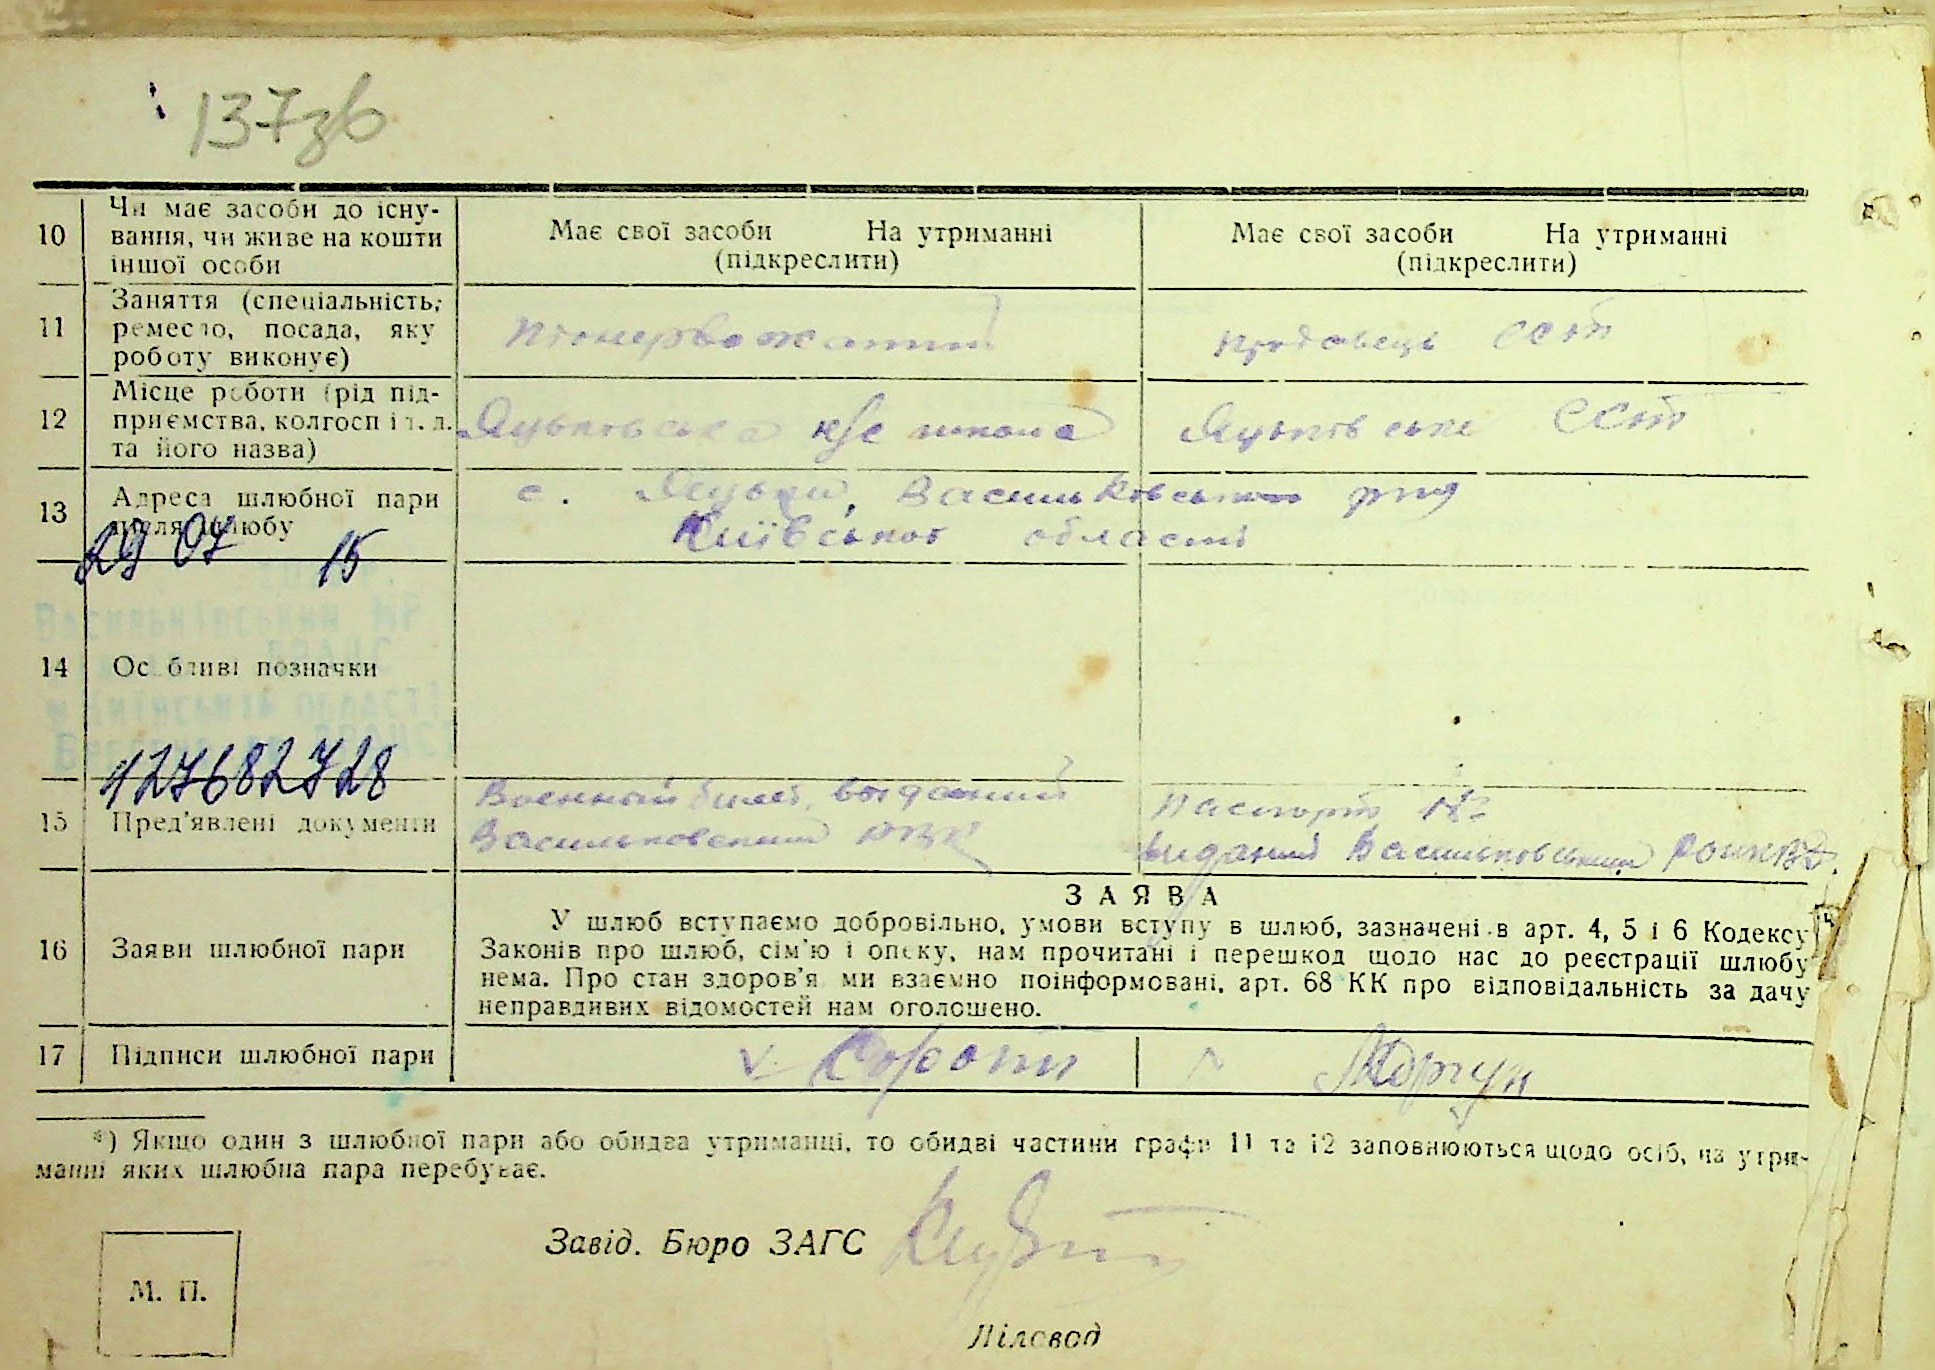 137зв
10 Чи має засоби до існу-
вання, чи живе на кошти
іншої особи
Має свої засоби На утриманні
(підкреслити)
Має свої засоби На утриманні
(підкреслити)
11 Заняття (спеціальність,
ремесло, посада, яку
роботу виконує)
піонервожатий
продавець ССт
12 Місце роботи (рід під-
приємства, колгосп і т. п.
та його назва)
Яцьківська н/с школа
Яцьківське ССт
13 Адреса шлюбної пари
після шлюбу
с. Яцьки, Васильківського р-ну
Київської області
29 07 15
Васильківський МР
Київській області
14 Особливі позначки
127682728
15 Пред'явлені документи
Военный билет, выданный
Васильковским РВК
Паспорт №
виданий Васильковським РОНКВД.
16 Заяви шлюбної пари
ЗАЯВА
У шлюб вступаємо добровільно, умови вступу в шлюб, зазначені в арт. 4, 5 і 6 Кодексу
Законів про шлюб, сім'ю і опеку, нам прочитані і перешкод щодо нас до реєстрації шлюбу
нема. Про стан здоров'я ми взаємно поінформовані, арт. 68 КК про відповідальність за дачу
неправдивих відомостей нам оголошено.
17 Підписи шлюбної пари
*) Якщо один з шлюбної пари або обидва утриманці, то обидві частини графи 11 та 12 заповнюються щодо осіб, на утри-
манні яких шлюбна пара перебуває.
Завід. Бюро ЗАГС
М. П.
Діловод